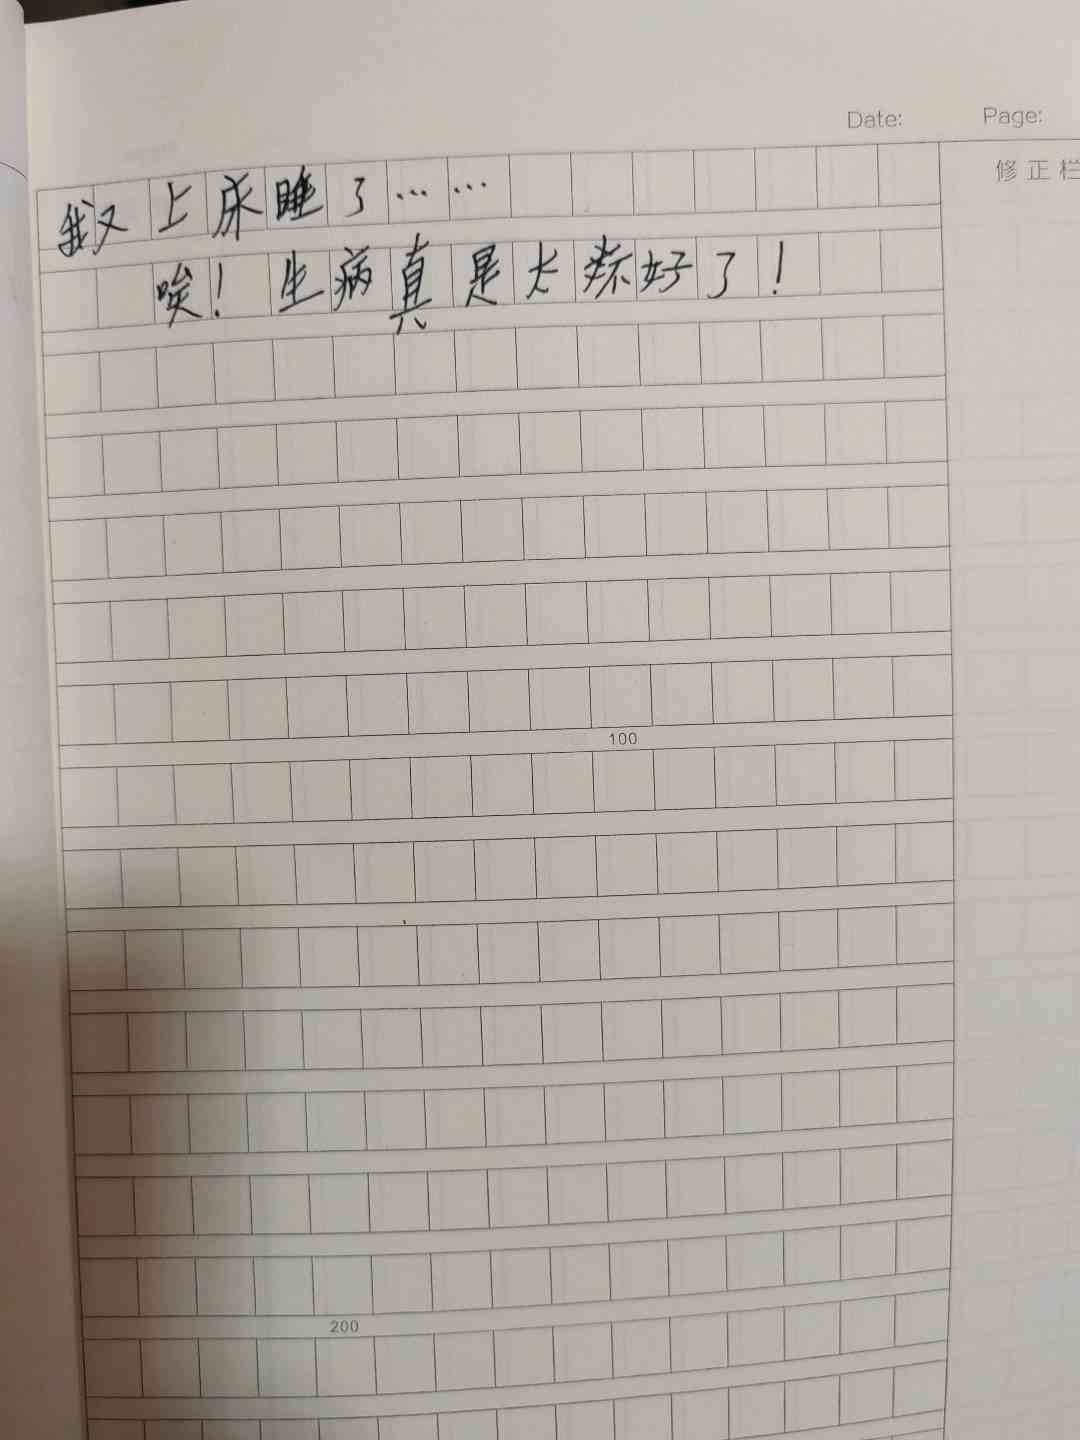 Date: Page:
修正栏
我又上床睡了……
唉！生病真是太不好了！
100
200